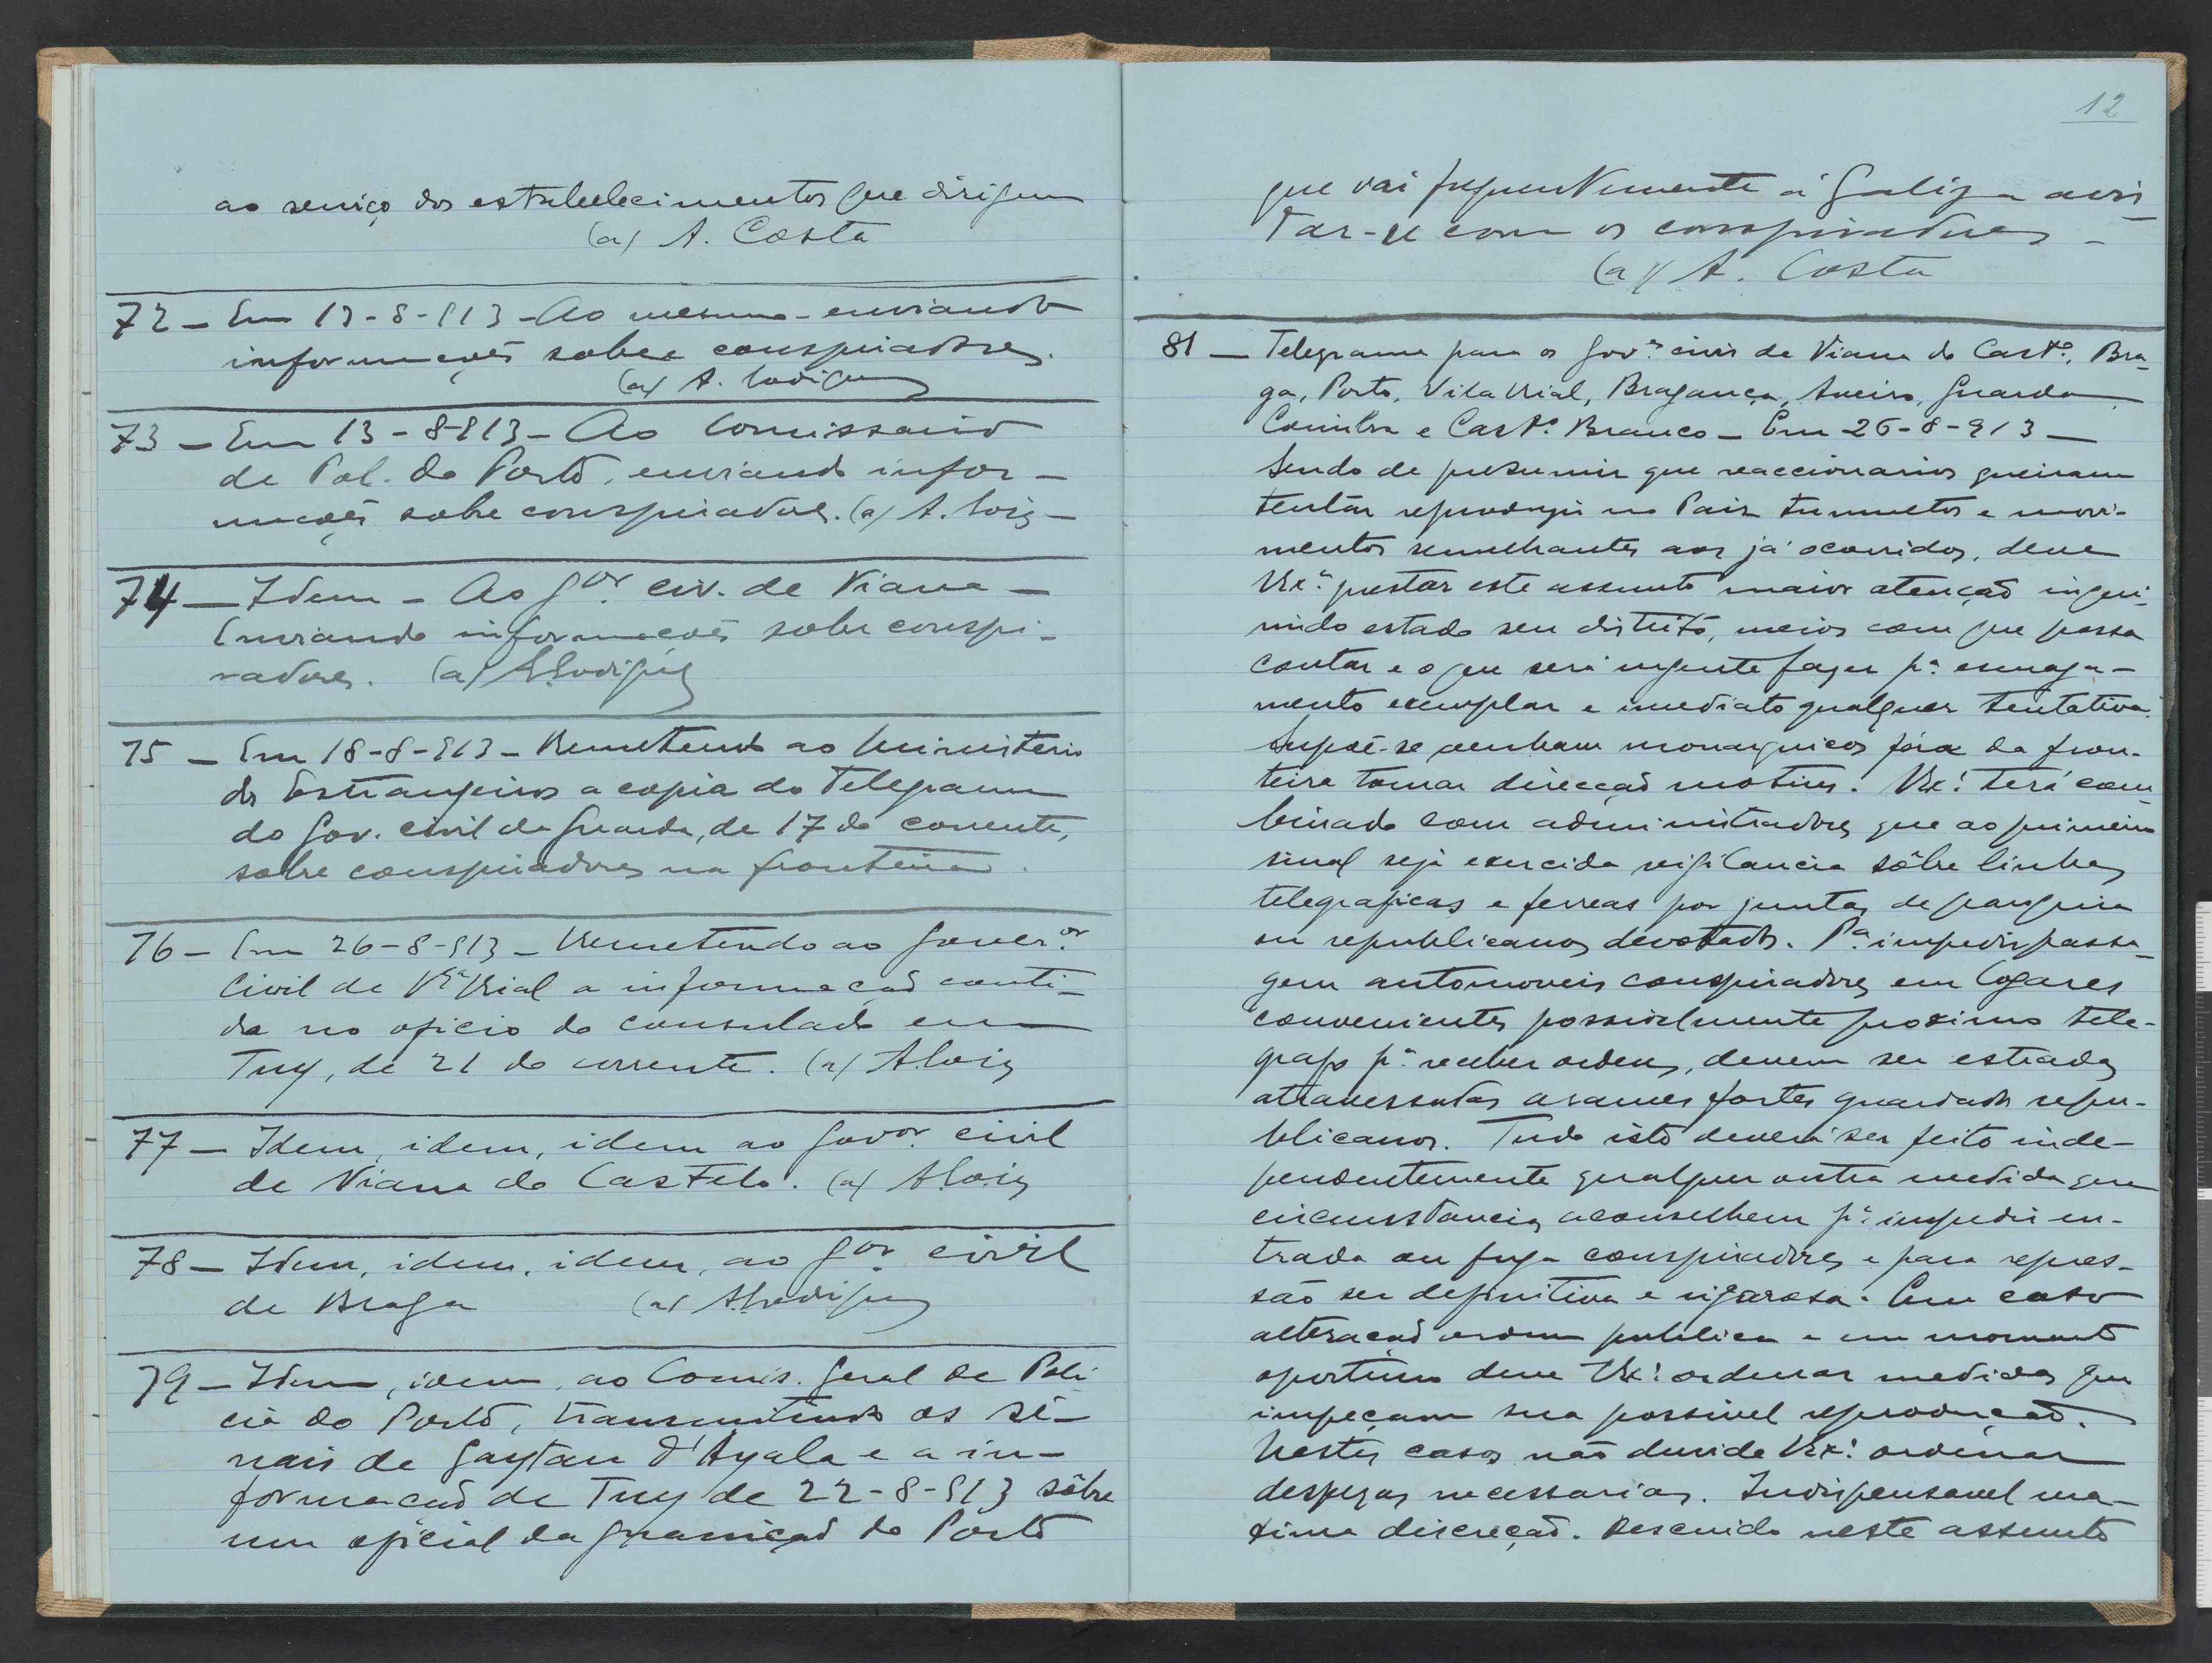 ao serviço dos estabelecimentos que dirigem
(a) A. Costa
72 — Em 13-8-913 - Ao mesmo - enviando
informações sobre conspiradores.
(a) A. Rodrigues
73 — Em 13-8-913 - Ao Comissario
de Pol. do Porto, enviando infor-
mações sobre conspiradores. (a) A.
74 — Idem - Ao Gor. civ. de Viana -
Enviando informações sobre conspi-
radores. (a) A. Rodrigues
75 — Em 18-8-913 - Remetendo ao Ministerio
dos Estrangeiros a copia do Telegrama
do Gov. civil da Guarda, de 17 do corrente,
sobre conspiradores na fronteira.
76 — Em 26-8-913 - Remetendo ao Governor.
Civil de Va Rial a informação conti-
da no oficio do consulado em
Tuy, de 21 do corrente. (a) A.
77 — Idem, idem, idem ao Govor. civil
de Viana do Castelo. (a) A.
78 — Idem, idem, idem, ao Gor. civil
de Braga (a) A. Rodrigues
79 — Idem, idem, ao Comis. Geral de Poli
cia do Porto, transmitindo os si-
nais de Gaytan d'Ayala e a in-
formação de Tuy de 22-8-913 sôbre
um oficial da guarnição do Porto
12
que vai frequentemente á Galiza avis
tar-se com os conspiradores -
(a) A. Costa
81 — Telegrama para os Govos. civis de Viana do Casto., Bra-
ga, Porto, Vila Rial, Bragança, Aveiro, Guarda
Coimbra e Casto. Branco - Em 26-8-913 —
Sendo de presumir que reaccionarios queiram
tentar reproduzir no Paiz tumultos e movi-
mentos semelhantes aos já ocorridos, deve
V. Exa. prestar este assunto maior atenção inqui-
rindo estado seu distrito, meios com que possa
contar e o que será urgente fazer pa. esmaga-
mento exemplar e imediato qualquer tentativa.
Supoē-se venham monarquicos fóra da fron-
teira tomar direcção motins. V. Exa. terá com
binado com administradores que ao primeiro
sinal seja exercida vigilancia sôbre linhas
telegraficas e ferreas por juntas de parquia
ou republicanos devotados. Pa. impedir passa-
gem automoveis conspiradores em logares
convenientes possivelmente proximo tele-
grafo pa. receber ordens, devem ser estradas
atravessadas arames fortes guardados repu-
blicanos. Tudo isto deverá ser feito inde-
pendentemente qualquer outra medida que
circunstancias aconselhem pa. impedir en-
trada ou fuga conspiradores e para repres-
são ser definitiva e rigorosa. Em caso
alteração ordem publica e em momento
oportuno deve V. Exa. ordenar medidas que
impeçam sua possivel reprodução.
Nestes casos não duvide V. Exa. ordenar
despezas necessarias. Indispensavel ma-
xima discreção. Descuido neste assunto